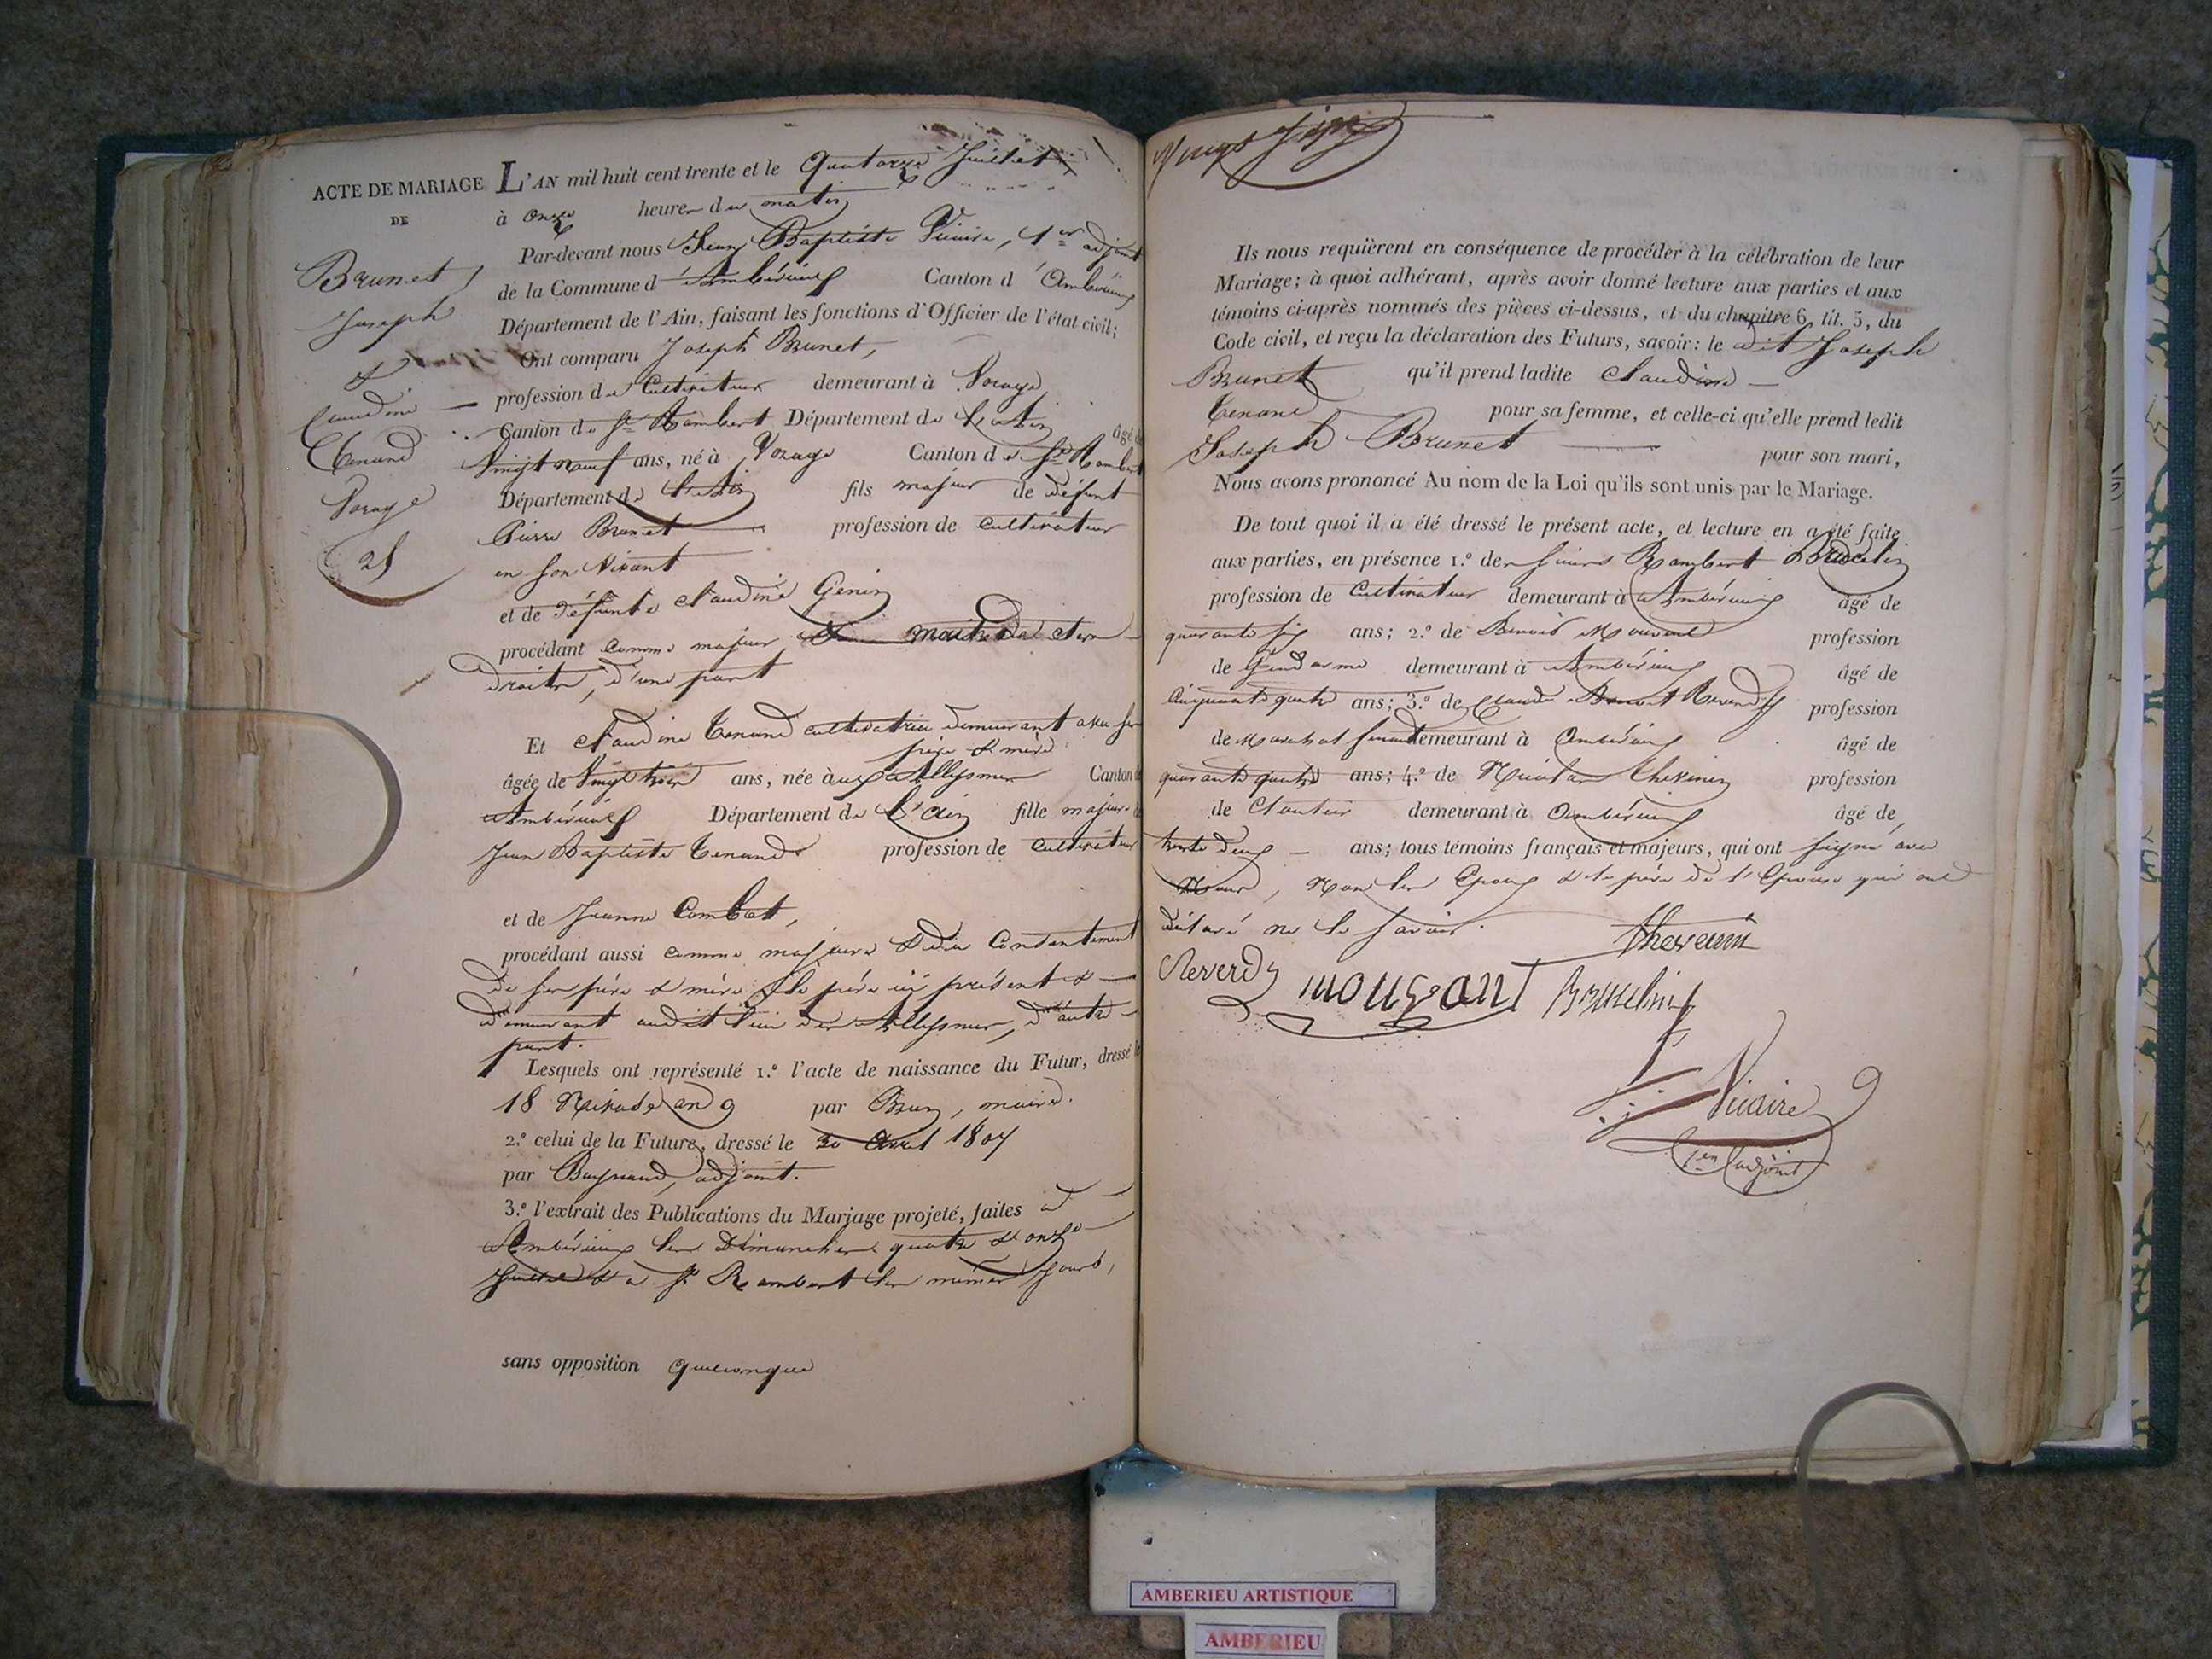 ACTE DE MARIAGE
DE
Brunet
Joseph
&
Claudine
Tenand
Vorage
L'AN mil huit cent trente et le Quatorze Juillet
à onze heures du matin
Par-devant nous Jean Baptiste Vicaire, 1er adjoint
de la Commune d'Ambérieux Canton d'Ambérieux
Département de l'Ain, faisant les fonctions d'Officier de l'état civil;
Ont comparu Joseph Brunet,
profession de Cultivateur demeurant à Vorage
Canton de St Rambert Département de l'ain âgé de
Vingt neuf ans, né à Vorage Canton de St Rambert
Département de l'ain fils majeur de défunt
Pierre Brunet profession de cultivateur
en son vivant
et de défunte Claudine Genin
procédant comme majeur & maitre de ses
droits, d'une part
Et Claudine Tenand cultivatrice demeurant avec ses
père & mère
âgée de Vingt trois ans, née aux allymes Canton
Ambérieux Département de l'ain fille majeure de
Jean Baptiste Tenand profession de cultivateur
et de Jeanne Combet,
procédant aussi comme majeure & du Consentement
de ses père & mère, le père ici présent &
demeurant audit lieu des allymes, d'autre
part.
Lesquels ont représenté 1.º l'acte de naissance du Futur, dressé le
18 Nivose an 9 par Brun, maire.
2.º celui de la Future, dressé le 20 avril 1807
par adjoint.
3.º l'extrait des Publications du Mariage projeté, faites à
Ambérieux les Dimanches quatre & onze
Juillet & à St Rambert les mêmes jours,
sans opposition quelconque
Vingt six
Ils nous requièrent en conséquence de procéder à la célébration de leur
Mariage; à quoi adhérant, après avoir donné lecture aux parties et aux
témoins ci-après nommés des pièces ci-dessus, et du chapitre 6, tit. 5, du
Code civil, et reçu la déclaration des Futurs, savoir: le dit Joseph
Brunet qu'il prend ladite Claudine
Tenand pour sa femme, et celle-ci qu'elle prend ledit
Joseph Brunet pour son mari,
Nous avons prononcé Au nom de la Loi qu'ils sont unis par le Mariage.
De tout quoi il a été dressé le présent acte, et lecture en a été faite
aux parties, en présence 1.º des sieurs Rambert Bruselin
profession de Cultivateur demeurant à Ambérieux âgé de
quarante six ans; 2.º de Benoit profession
de Gendarme demeurant à Ambérieux âgé de
Cinquante quatre ans; 3.º de Claude Reverdy profession
de Marechal ferrant demeurant à Ambérieux âgé de
quarante quatre ans; 4.º de Nicolas Thevenin profession
de Cloutier demeurant à Ambérieux âgé de
trente deux ans; tous témoins français et majeurs, qui ont signé avec
Nous, Non les Epoux & le père de l'Epouse qui ont
déclaré ne le savoir.
Thevenin
Reverdy
Bruselin
Vicaire
1er adjoint
AMBERIEU ARTISTIQUE
AMBERIEU